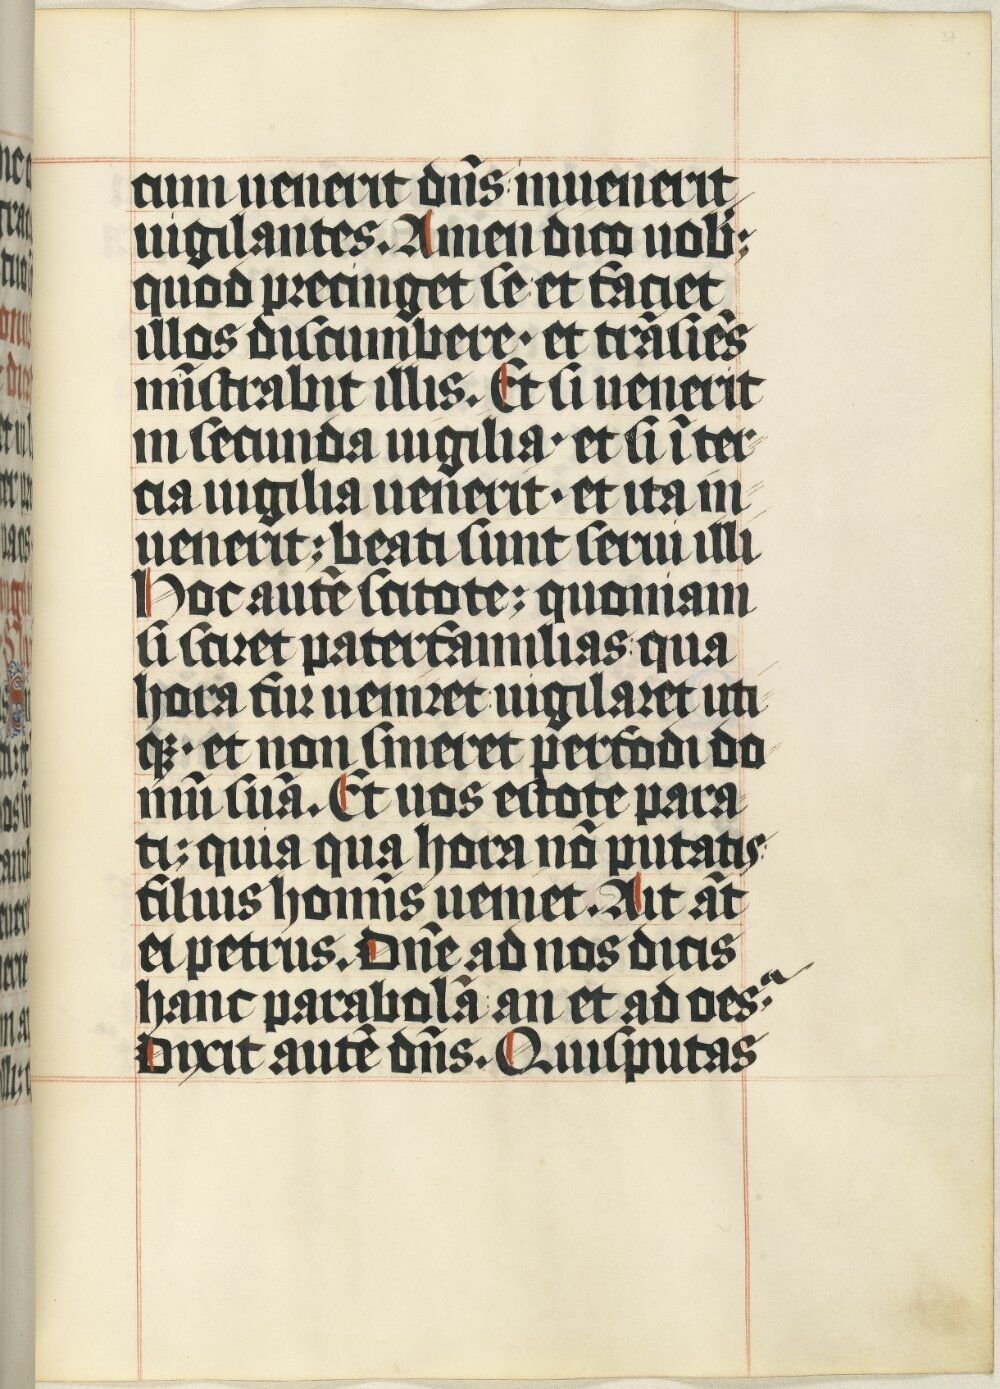 cum uenerit dn̄s: inuenerit
uigilantes. Amen dico uob:
quod precinget se et faciet
illos discumbere· et trāsiēs
mīstrabit illis. Et si uenerit
in secunda uigilia· et si ī ter-
cia uigilia uenerit· et ita in-
uenerit; beati sunt serui illi
Hoc autē scitote; quoniam
si sciret paterfamilias: qua
hora fur ueniret uigilaret uti
qꝫ· et non sineret perfodi do
mū suā. Et uos estote para
ti; quia qua hora nō putatis
filius homīs ueniet. Ait āt
ei petrus. Dn̄e ad nos dicis
hanc parabolā: an et ad oēs:
Dixit autē dn̄s. Quis putas
37